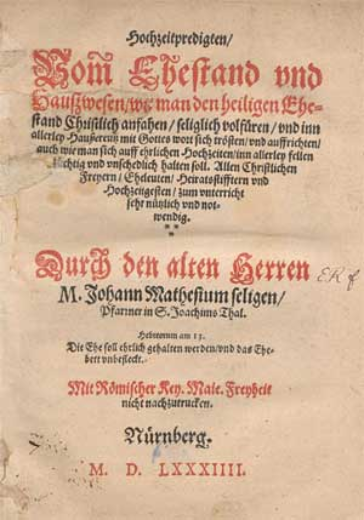 Hochzeitpredigten/
Vom̃ Ehestand vnd
Haußwesen/wie man den heiligen Ehe-
stand Christlich anfahen/seliglich volfüren/vnd inn
allerley Haußcreutz mit Gottes wort sich trösten/vnd auffrichten/
auch wie man sich auff ehrlichen Hochzeiten/inn allerley fellen
züchtig vnd vnschedlich halten soll. Allen Christlichen
Freyern/Eheleuten/Heiratsstifftern vnd
Hochzeitgesten/zum vnterricht
sehr nützlich vnd not-
wendig.
* *
*
Durch den alten Herren
M. Johann Mathesium seligen/
Pfarrner in S. Joachims Thal.
Hebreorum am 13.
Die Ehe soll ehrlich gehalten werden/vnd das Ehe-
bett vnbefleckt.
Mit Römischer Key. Maie. Freyheit
nicht nachzutrucken.
Nürnberg.
M. D. LXXXIIII.